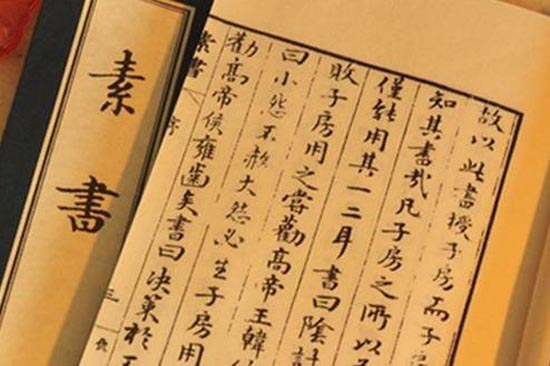 故以此書授子房而子
知其書哉凡子房之所以
僅能用其一二耳書曰陰計
敗子房用之嘗勸髙帝王韓
曰小怨不赦大怨必生子房用
勸髙帝侯雍齒矣書曰決策於
素書 序 三
素書